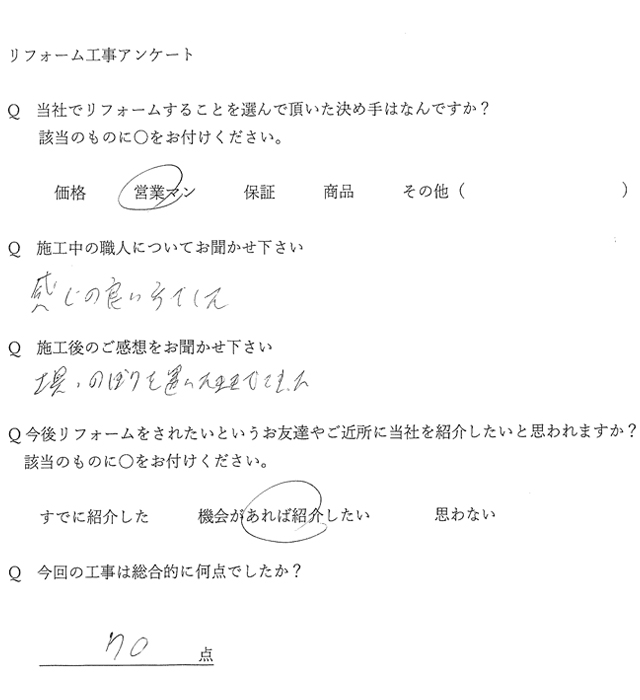 リフォーム工事アンケート
Q 当社でリフォームすることを選んで頂いた決め手はなんですか？
該当のものに○をお付けください。
価格 営業マン 保証 商品 その他（ ）
Q 施工中の職人についてお聞かせ下さい
感じの良い方でした
Q 施工後のご感想をお聞かせ下さい
のぼりを置いたままでした
Q 今後リフォームをされたいというお友達やご近所に当社を紹介したいと思われますか？
該当のものに○をお付けください。
すでに紹介した 機会があれば紹介したい 思わない
Q 今回の工事は総合的に何点でしたか？
70 点